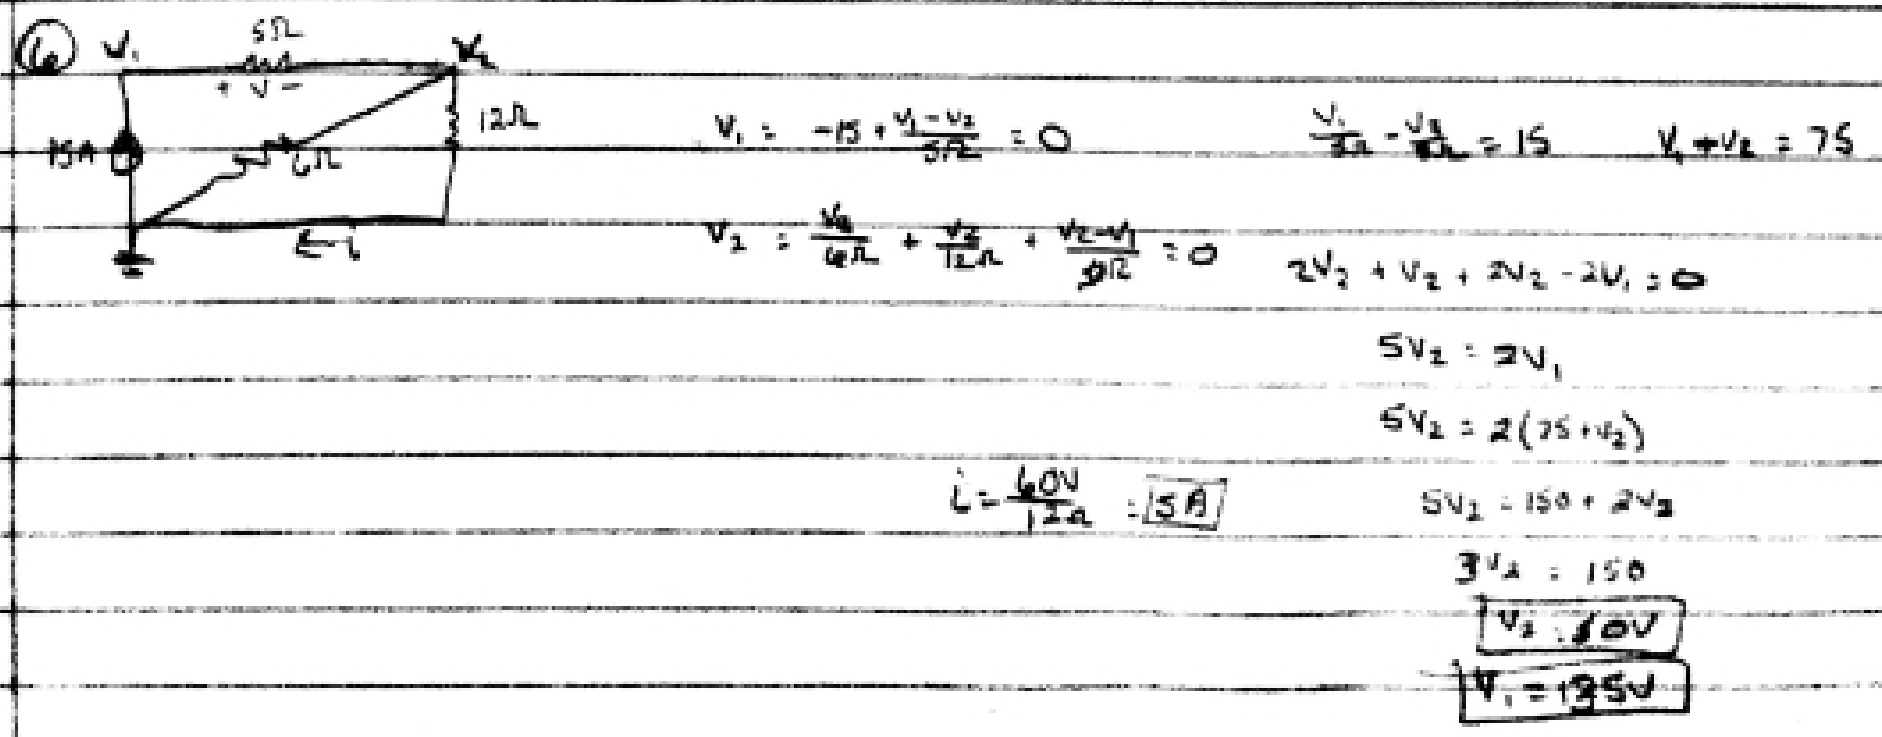 6
V₁ 5Ω V₂
+ V −
12Ω
15A 6Ω
← i
V₁ = -15 + (V₁ - V₂)/5Ω = 0
V₁/5Ω - V₂/5Ω = 15 V₁ - V₂ = 75
V₂ = V₂/6Ω + V₂/12Ω + (V₂-V₁)/5Ω = 0
2V₂ + V₂ + 2V₂ - 2V₁ = 0
5V₂ = 2V₁
5V₂ = 2(75+V₂)
i = 60V/12Ω = 5A
5V₂ = 150 + 2V₂
3V₂ = 150
V₂ = 60V
V₁ = 135V